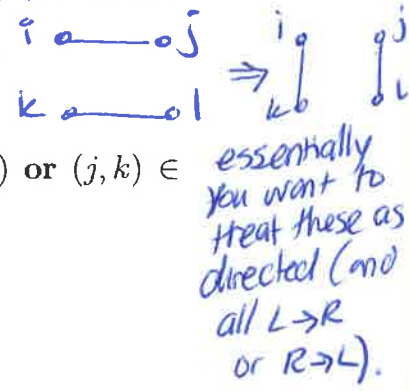 i j i j
⇒
k l k l
) or (j, k) ∈
essentially
you want to
treat these as
directed (and
all L→R
or R→L).